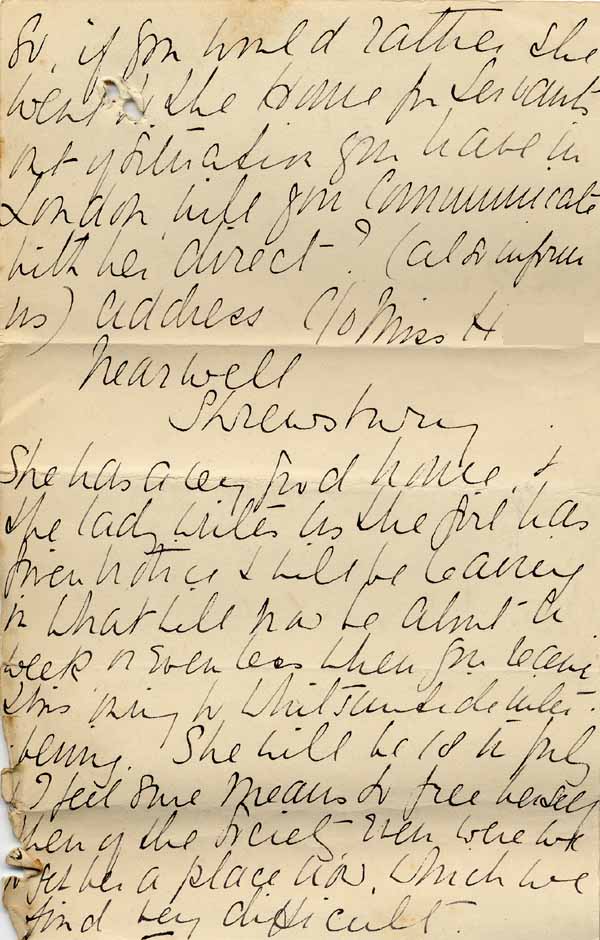 Or, if you would rather she
went to the Home for Servants
out of situation you have in
London will you communicate
with her direct? (also inform
us) address C/o Miss H
Nearwell
Shrewsbury
She has a very good home, &
the lady writes us the girl has
given notice & will be leaving
in what will now be about a
week or even less when you receive
this owing to Whitsuntide inter-
-vening. She will be 18 in July
& I feel sure means to free herself
then of the Society even were we
to get her a place now, which we
find very difficult.